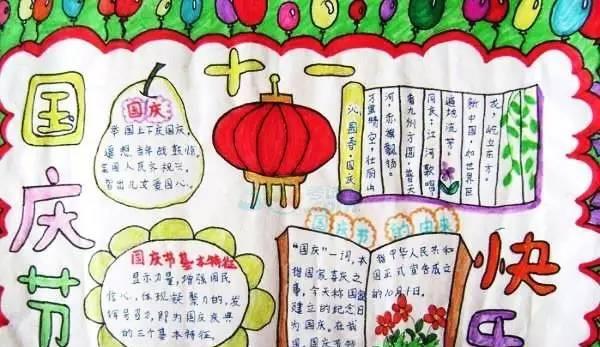 十一
国庆节
国庆
举国上下庆国庆,
遥想当年战鼓惊。
全国人民齐祝兴
皆出儿女爱国心。
沁园春·国庆
万里晴空,壮丽山
河,赤旗飘扬。
看九州方圆,普天
同庆;江河歌唱
遍地流芳。
新中国,如世界巨
龙,屹立东方。
国庆节基本特征
显示力量,增强国民
信心,体现凝聚力的,发
挥号召力,即为国庆庆典
的三个基本特征。
国庆节 的由来
“国庆”一词,本
指国家喜庆之
事,今天称国
建立的纪念日
为国庆。在我
国,国庆节特
指中华人民共和
国正式宣告成立
的10月1日。
快乐